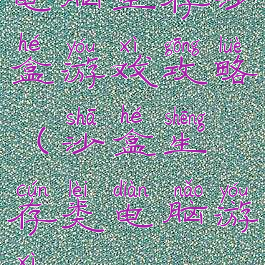 电脑生存沙
hé yóu xì gōng lüè
盒游戏攻略
shā hé shēng
（沙盒生
cún lèi diàn nǎo yóu
存类电脑游
xì